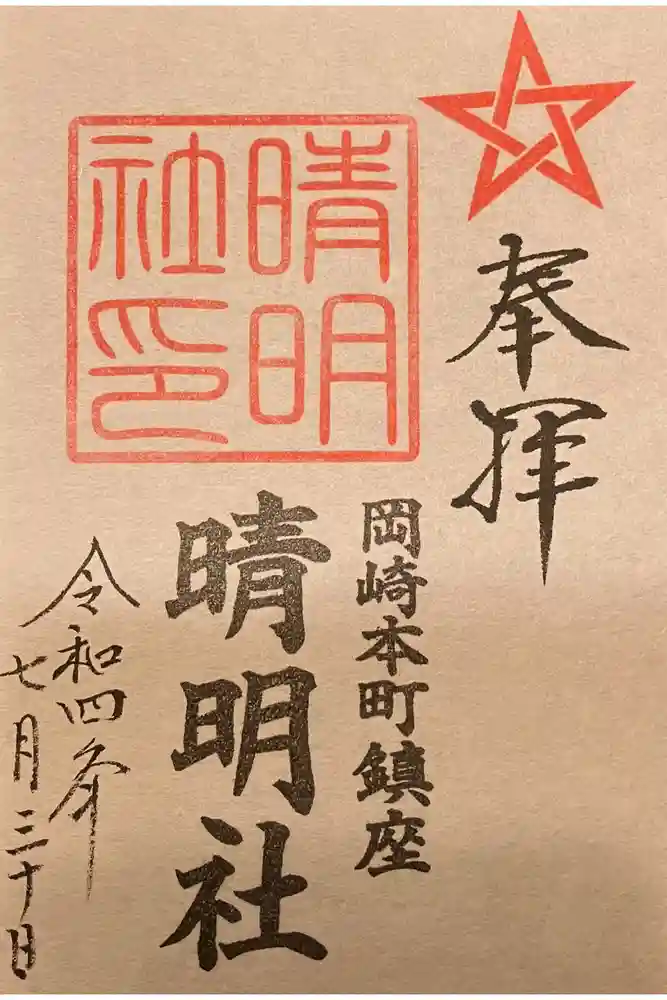 奉拝
岡崎本町鎮座
晴明
社印
晴明社
令和四年
七月三十日